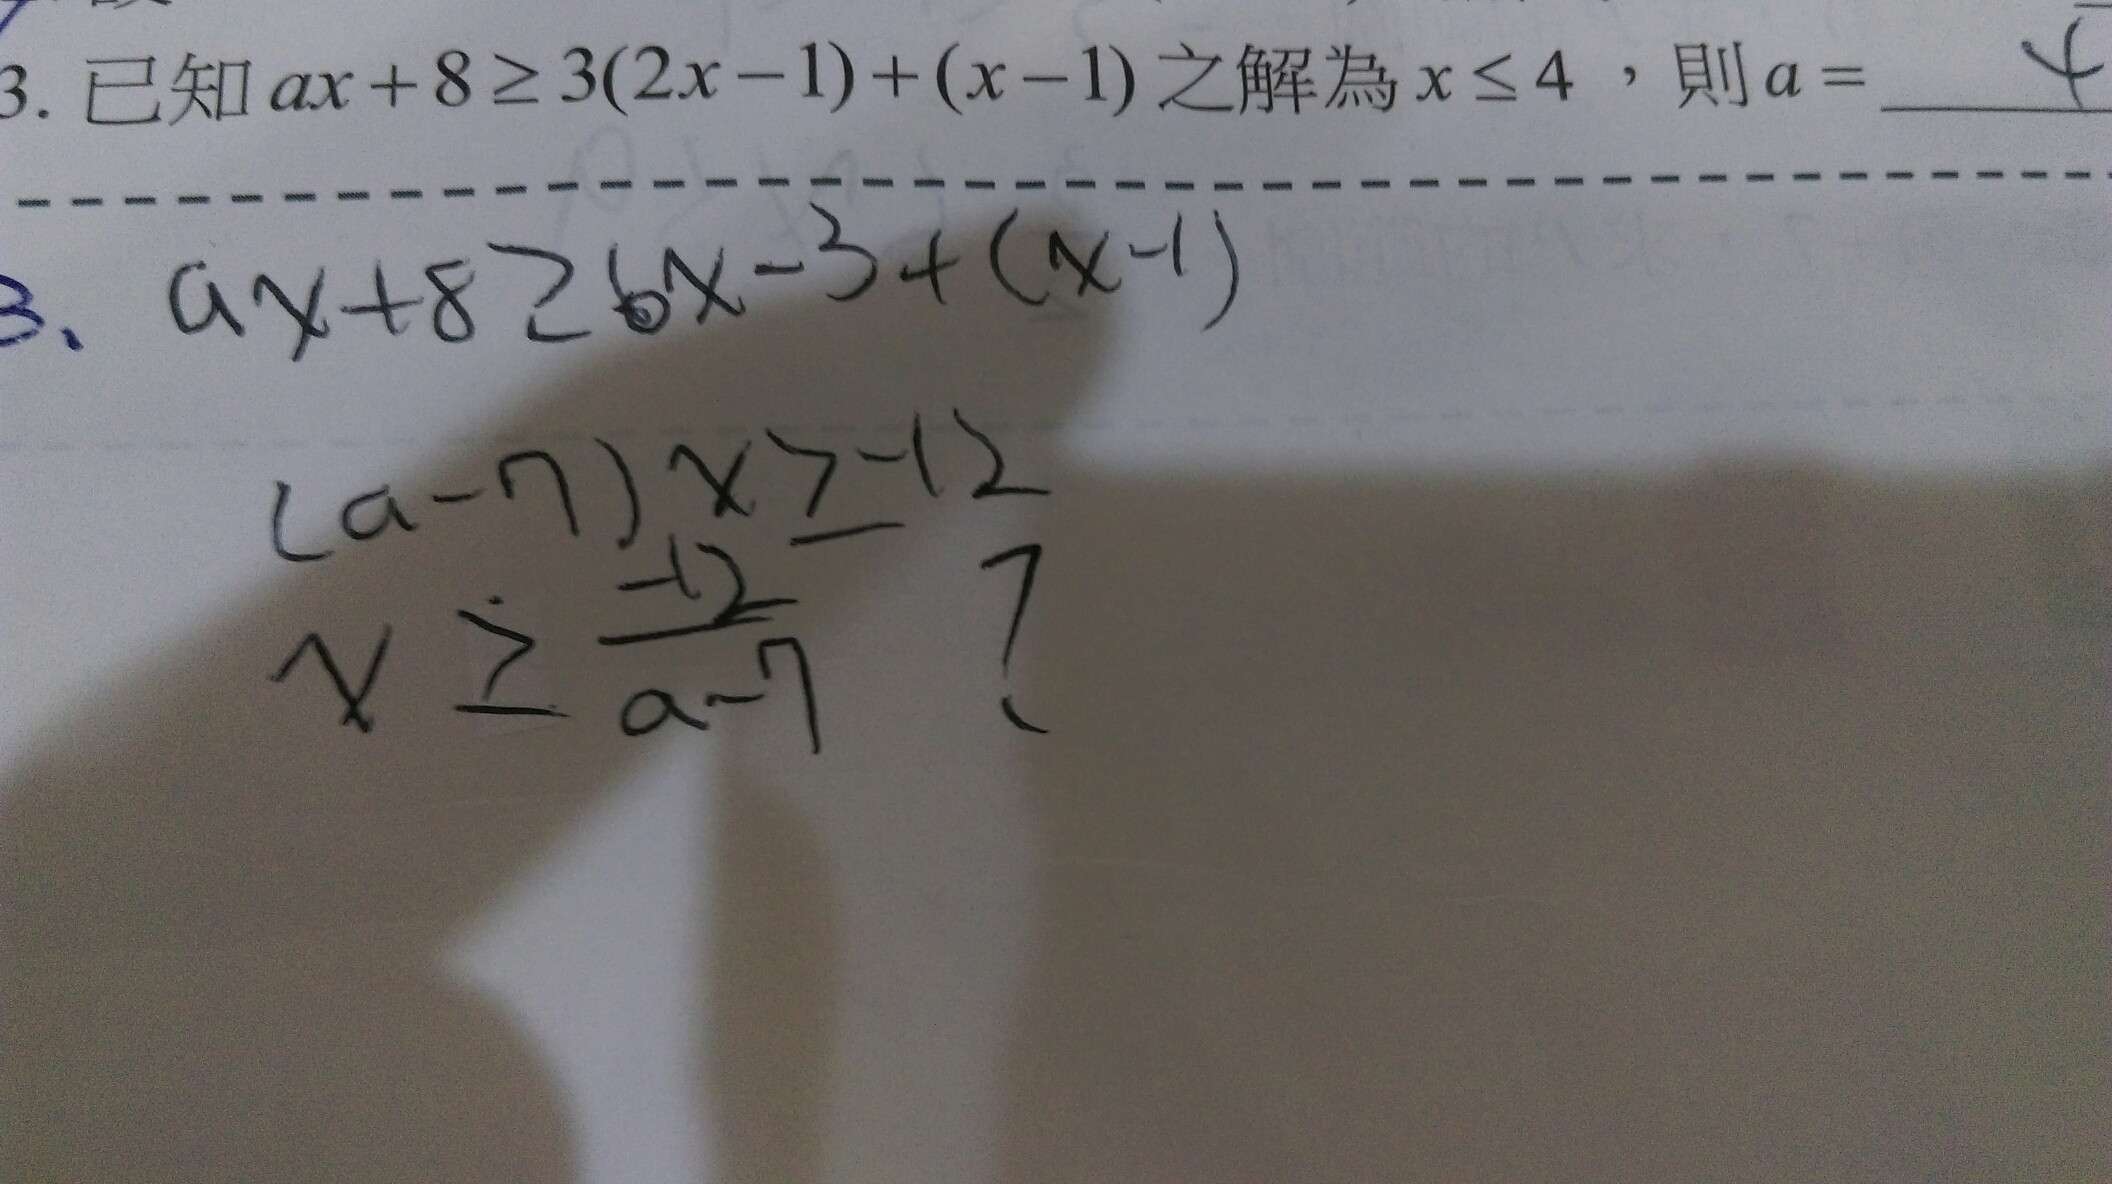 3. 已知 ax+8≥3(2x−1)+(x−1) 之解為 x≤4 ，則 a = 4
3、 ax+8≥6x-3+(x-1)
(a-7)x≥-12
x ≥ -12/a-7 ?